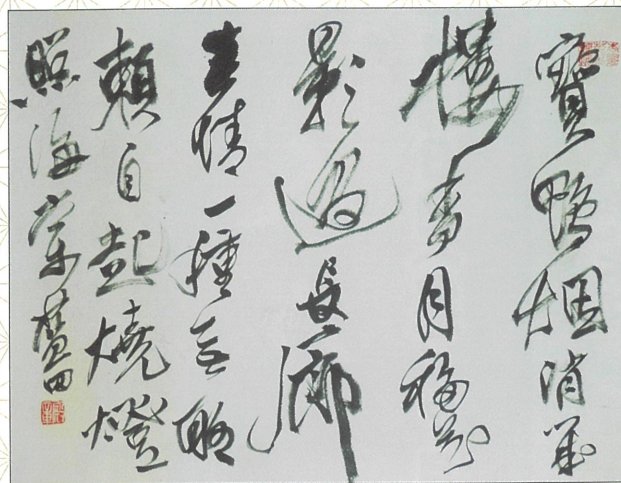 寶鴨烟消
樓香月移花
影過長廊
春情一種無聊
賴自起燒燈
照海棠 田